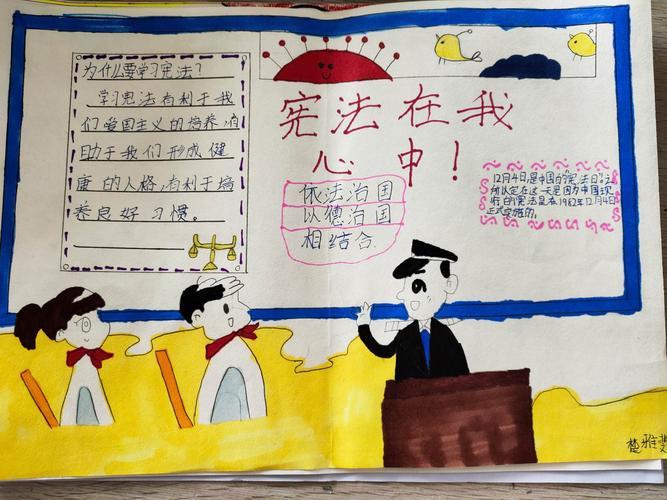 为什么要学习宪法？
学习宪法有利于我
们爱国主义的培养,有
助于我们形成健
康的人格,有利于培
养良好习惯。
宪法在我
心中！
依法治国
以德治国
相结合
12月4日,是中国的"宪法日"之
所以定在这一天是因为中国现
行的宪法是在1982年12月4日
正式实施的。
楚雅斐